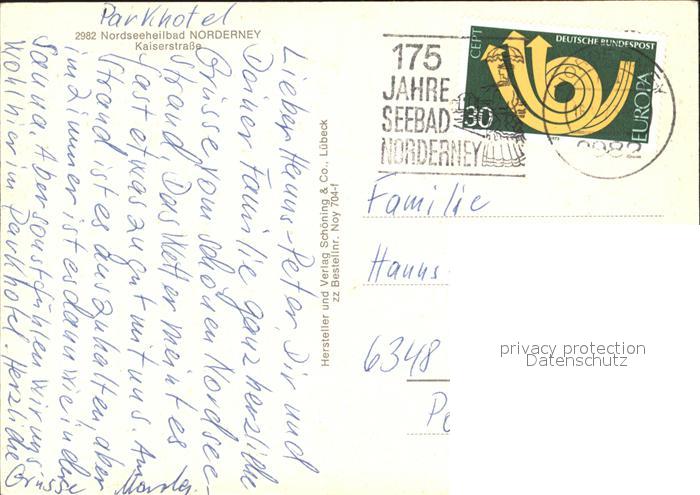 Parkhotel
2982 Nordseeheilbad NORDERNEY
Kaiserstraße
Lieber Hanns-Peter, Dir und
Deiner Familie ganz herzliche
Grüsse vom schönen Nordsee-
strand. Das Wetter meint es
fast etwas zu gut mit uns. Am
Strand ist es auszuhalten, aber
im Zimmer ist es dann wie in der
Sauna. Aber sonst fühlen wir uns
wohl hier im Parkhotel. Herzliche
Grüsse
Hersteller und Verlag Schöning & Co., Lübeck
zz Bestellnr. Noy 704-f
175
JAHRE
SEEBAD
NORDERNEY
2982
CEPT
DEUTSCHE BUNDESPOST
EUROPA
30
Familie
Hanns-
6348
privacy protection
Datenschutz